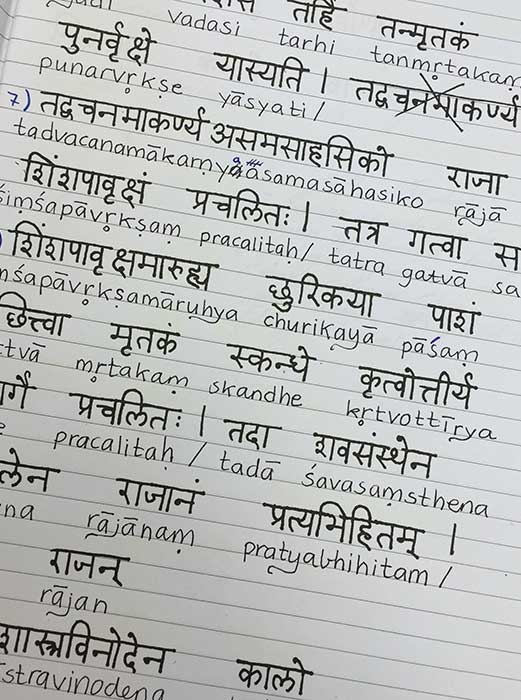 तर्हि तन्मृतकं
vadasi tarhi tanmṛtakaṃ
पुनर्वृक्षे यास्यति । तद्वचनमाकर्ण्य
punarvṛkṣe yāsyati /
7) तद्वचनमाकर्ण्य असमसाहसिको राजा
tadvacanamākarṇya asamasāhasiko rājā
शिंशपावृक्षं प्रचलितः । तत्र गत्वा स
śiṃśapāvṛkṣaṃ pracalitaḥ / tatra gatvā sa
) शिंशपावृक्षमारुह्य छुरिकया पाशं
ṃśapāvṛkṣamāruhya churikayā pāśaṃ
छित्त्वा मृतकं स्कन्धे कृत्वोत्तीर्य
tvā mṛtakaṃ skandhe kṛtvottīrya
र्गे प्रचलितः । तदा शवसंस्थेन
pracalitaḥ / tadā śavasaṃsthena
लेन राजानं प्रत्यभिहितम् ।
na rājānaṃ pratyabhihitam /
राजन्
rājan
शास्त्रविनोदेन कालो
stravinodena